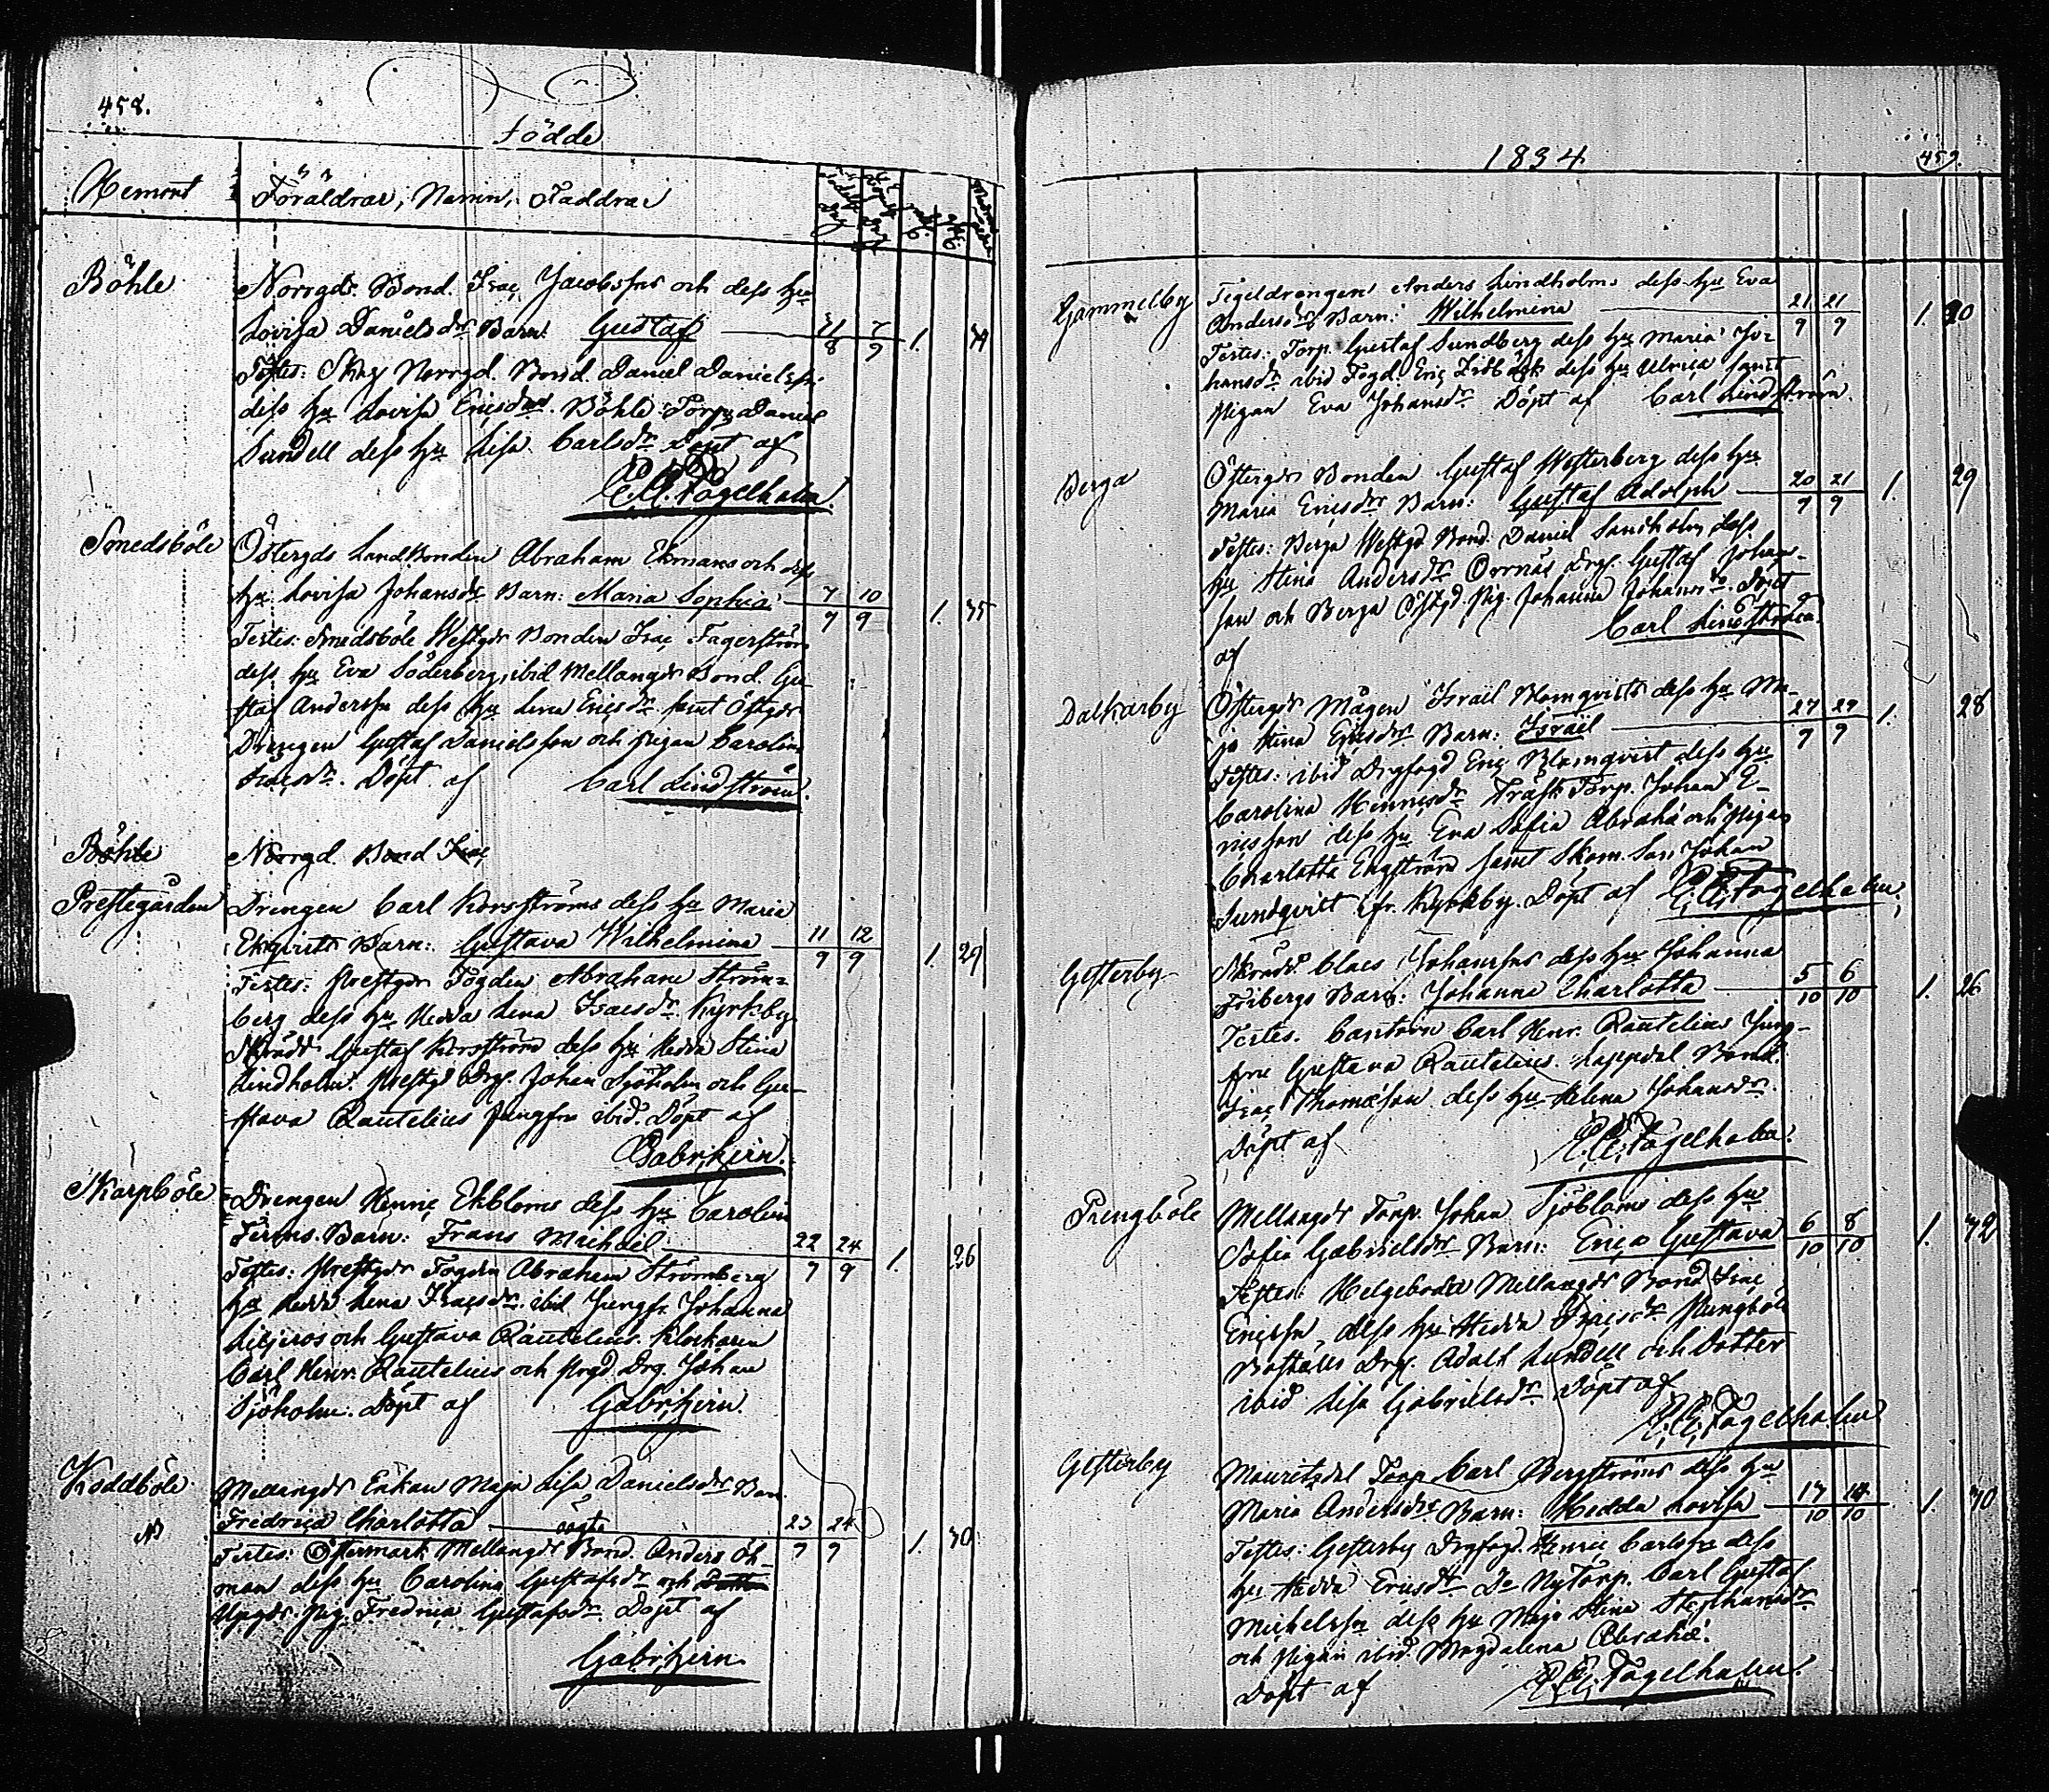 458.
Födde
Hemort
Föräldrar, Namn, Faddrar
Böhle
Norrgds Bond. Isac Jacobsfns och dess hu
Lovisa Danielsdrs Barn: Gustaf
31 7 1. 34
8 9
Testes: Skag Norrgd. Bond. Daniel Danielsfn
dess hu Lovisa Ericsdr. Böhle Torp. Daniel
Sundell dess hu Lisa Carlsdr Döpt af
C. E. Fogelholm.
Smedsböle
Östergds Landbonden Abraham Ekmans och dess
hu Lovisa Johansdrs Barn: Maria Sophia
7 10 1. 35
9 9
Testes: Smedsböle Westgds Bonden Isac Fagerström
dess hu Eva Söderberg, ibid Mellangds Bond. Gu-
staf Andersfn dess hu Lena Ericsdr samt Östgds
Drengen Gustaf Danielsson och Pigan Carolina
Isacsdr. Döpt af Carl Lindström.
Böhle Norrgd. Bond Isac
Prestegården
Drengen Carl Korsströms dess hu Maria
Ekqvists Barn: Gustava Wilhelmina
11 12 1. 29
9 9
Testes: Prestgds Fogden Abraham Ström-
berg dess hu Hedda Lena Isacsdr. Kyrkby
Skrädd. Gustaf Korsström dess hu Hedda Stina
Lindholm. Prestgd Drg. Johan Sjöholm och Gu-
stava Rautelius Jungfru ibid. Döpt af
Gabr. Hirn.
Skarpböle
Drengen Henric Ekbloms dess hu Carolin
Ferms. Barn: Frans Michael
22 24 1. 26
9 9
Testes: Prestgds Fogden Abraham Strömberg
hu Hedda Lena Isacsdr. ibid Jungfr. Johanna
Liljeros och Gustava Rautelius. Klockaren
Carl Henr. Rautelius och Prgd. Drg. Johan
Sjöholm. Döpt af Gabr. Hirn.
Koddböle
Mellangds Enkan Maja Lisa Danielsdrs Barn
Fredrica Charlotta oägta
23 24 1. 30
9 9
Testes: Östermark Mellangds Bond. Anders Öh-
man dess hu Carolina Gustafsdr och
Uppgds. Pig. Fredrica Gustafsdr. Döpt af
Gabr. Hirn
1834
459.
Gammelby
Tegeldrengen Anders Lindholms dess hu Eva
Andersdrs Barn: Wilhelmina
21 21 1. 20
9 9
Testes: Torp. Gustaf Sundberg dess hu Maria Jo-
hansdr ibid Fogd. Eric dess hu Ulrica samt
Pigan Eva Johansdr Döpt af Carl Lindström.
Berga
Östergds Bonden Gustaf Westerberg dess hu
Maria Ericsdrs Barn: Gustaf Adolph
20 21 1. 29
9 9
Testes: Berga Westgd Bond. Daniel Sandholm dess
hu Stina Andersdr Orrnäs Drg. Gustaf Johans-
son och Berga Östgd. Pig. Johanna Johansdr. Döpt
af Carl Lindström
Dalkarby
Östergds Mågen Israel Blomqvists dess hu Ma-
ja Stina Ericsdrs Barn: Israel
27 29 1. 28
9 9
Testes: ibid Drgfogd Eric Blomqvist dess hu
Carolina Henricsdr Träsk Torp. Johan E-
ricsson dess hu Eva Sofia Abrahä och Pigan
Charlotta Engström samt Skom. Son Johan
Sundqvist fr. Kyrkby. Döpt af C. E. Fogelholm.
Gesterby
Skrädd. Claes Johansfns dess hu Johanna
Fribergs Barn: Johanna Charlotta
5 6 1. 26
10 10
Testes. Cantorn Carl Henr. Rautelius Jung-
fru Gustava Rautelius. Lappdal Bond.
Isac Thomæson dess hu Helena Johansdr.
Döpt af C. E. Fogelholm.
Prengböle
Mellangds Torp. Johan Sjöbloms dess hu
Sofia Gabrielsdrs Barn: Erica Gustava
6 8 1. 32
10 10
Testes: Helgeboda Mellangds Bond Isac
Ericsfn, dess hu Hedda Isacsdr. Prengböle
Boställs Drg. Adolf Lundell och Dotter
ibid Lisa Gabrielsdr Döpt af
C. E. Fogelholm
Gesterby
Mauritzdal Torp Carl Bergströms dess hu
Maria Andersdrs Barn: Hedda Lovisa
13 14 1. 30
10 10
Testes: Gesterby Drgfogd. Henric Carlsfn dess
hu Hedda Ericsdr Do NyTorp. Carl Gustaf
Michelsfn dess hu Maja Stina Stephansdr.
och Pigan ibid. Magdalena Abrahä.
Döpt af C. E. Fogelholm.